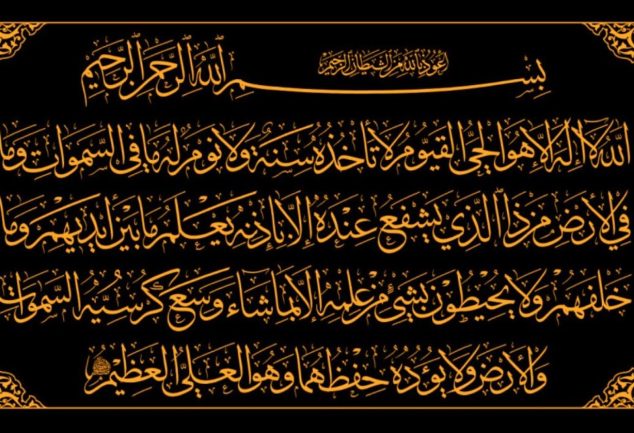 اعوذ بالله من الشيطان الرجيم
بسم الله الرحمن الرحيم
الله لا إله إلا هو الحي القيوم لا تأخذه سنة ولا نوم له ما في السموات وما
في الأرض من ذا الذي يشفع عنده إلا بإذنه يعلم ما بين أيديهم وما
خلفهم ولا يحيطون بشيء من علمه إلا بما شاء وسع كرسيه السموات
والأرض ولا يؤده حفظهما وهو العلي العظيم